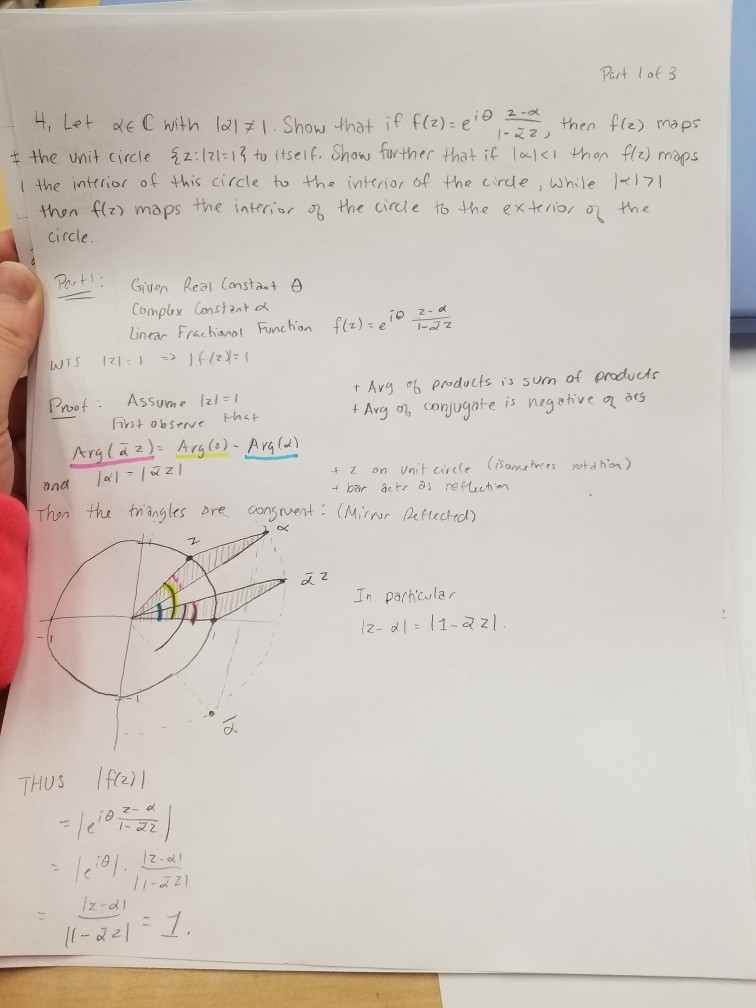 Part 1 of 3
4. Let α ∈ ℂ with |α| ≠ 1. Show that if f(z) = e^{iθ} (z-α)/(1-ᾱz), then f(z) maps
the unit circle {z: |z|=1} to itself. Show further that if |α|<1 then f(z) maps
the interior of this circle to the interior of the circle, while |α|>1
then f(z) maps the interior of the circle to the exterior of the
circle.
Part 1: Given Real Constant θ
Complex Constant α
Linear Fractional Function f(z) = e^{iθ} (z-α)/(1-ᾱz)
WTS |z|=1 => |f(z)|=1
Proof: Assume |z|=1
First observe that
+ Arg of products is sum of products
+ Arg of conjugate is negative of arg
Arg(ᾱz) = Arg(z) - Arg(α)
and |α| = |ᾱz|
+ z on unit circle (isometries rotation)
+ bar acts as reflection
Then the triangles are congruent: (Mirror Reflected)
z
α
ᾱz
-1
1
-1
ᾱ
In particular
|z-α| = |1-ᾱz|.
THUS |f(z)|
= |e^{iθ} (z-α)/(1-ᾱz)|
= |e^{iθ}| · |z-α|/|1-ᾱz|
= |z-α|/|1-ᾱz| = 1.